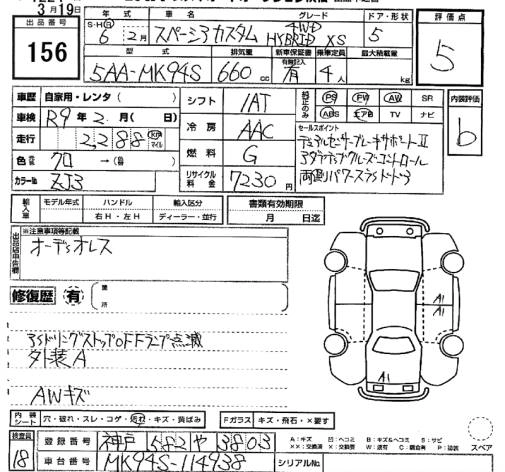 3月19日
出品番号
156
年式 車名 グレード ドア・形状
S・H・R 6年 2月 スペーシアカスタム 4WD HYBRID XS 5
評価点
5
型式 排気量 新車保証書 乗車定員 最大積載量
5AA-MK94S 660cc 有 4人 kg
車歴 自家用・レンタ( )
車検 R9年 2月( 日)
走行 2,288 km マイル
色 クロ →( 色)
カラーNo. ZJ3
シフト IAT
冷房 AAC
燃料 G
リサイクル料金 7230円
純正のみ PS PW AW SR
ABS エアB TV ナビ
セールスポイント
デュアルセンサーブレーキサポートII
アダプティブクルーズコントロール
両側パワースライドドア
内装評価
b
輸入車 モデル年式 ハンドル 輸入区分 書類有効期限
右H・左H ディーラー・並行 月 日迄
出品店申告欄
※注意事項等記載
オーディオレス
修復歴 有 箇所
アイドリングストップOFFランプ点滅
外装A
AWキズ
A1
A1
A1
内装シート 穴・破れ・スレ・コゲ・汚れ・キズ・黄ばみ Fガラス キズ・飛石・×要す
検査員
18
登録番号 神戸 582 や 3803
車台番号 MK94S-114938
シリアルNo.
A:キズ U:ヘコミ B:キズ&ヘコミ S:サビ
××:交換済 ×:要交換 W:波有 C:腐食有 P:塗装
スペア